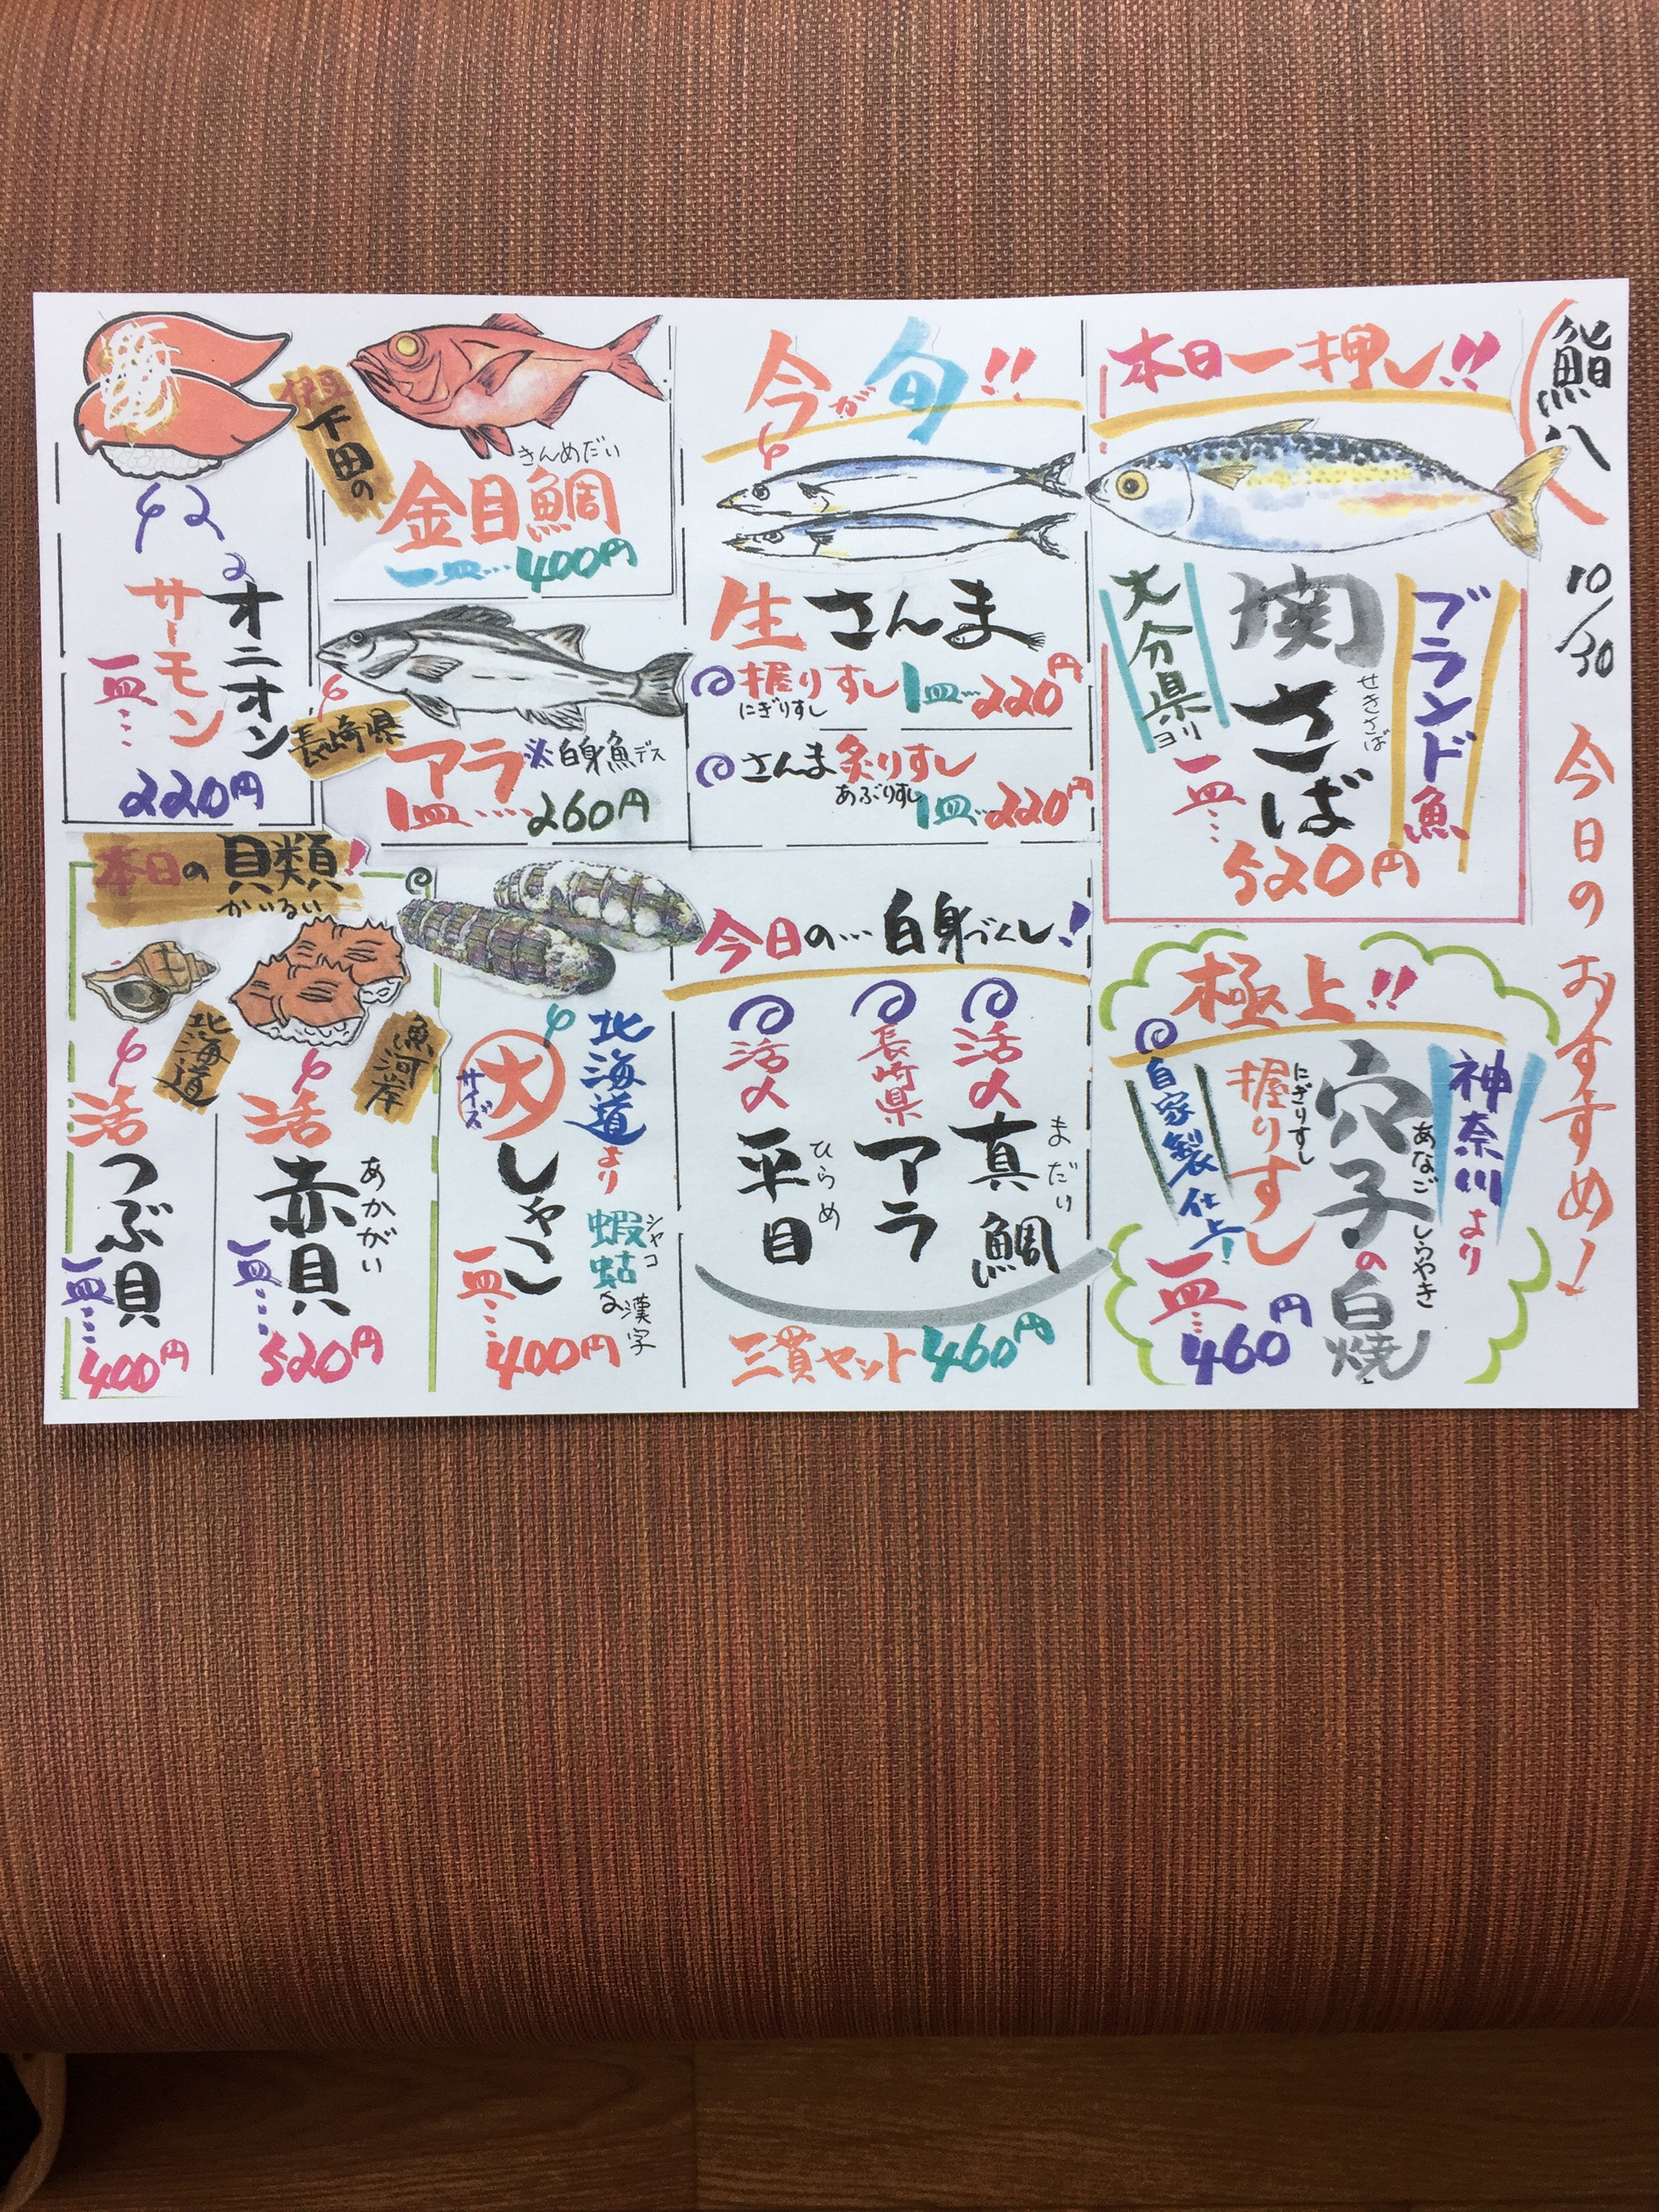 鮨八
10/30
今日のおすすめ!
本日一押し!!
ブランド魚
関さば
せきさば
大分県ヨリ
一皿…
520円
極上!!
神奈川より
穴子の白焼
あなご
しらやき
握りすし
にぎりすし
自家製仕上!
一皿…
460円
今が旬!!
生さんま
握りすし 1皿…220円
にぎりすし
さんま炙りすし
あぶりすし
1皿…220円
今日の…白身づくし!
活〆
真鯛
まだい
長崎県
アラ
活〆
平目
ひらめ
三貫セット460円
伊豆下田の
きんめだい
金目鯛
一皿…400円
長崎県
アラ※白身魚デス
1皿……260円
オニオン
サーモン
一皿…
220円
北海道より
大
サイズ
しゃこ
蝦蛄
シャコ
漢字
一皿…
400円
本日の貝類!
かいるい
魚河岸
活
赤貝
あかがい
一皿…
520円
北海道
活
つぶ貝
一皿…
400円